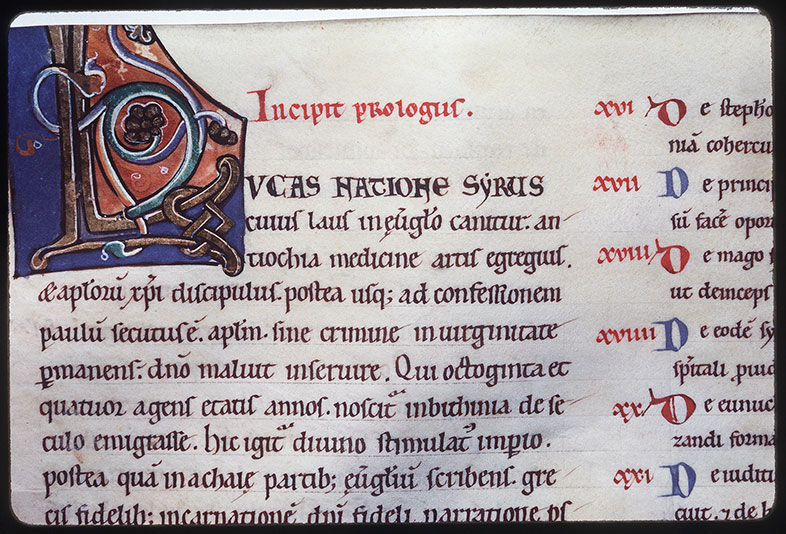 Incipit prologus.
LVCAS NATIONE SYRUS
cuius laus in eu̅gl̅o canitur. an-
tiochia medicine artis egregius.
& apl̅oru̅ xp̅i discipulus. postea usq; ad confessionem
paulu̅ secutus e̅. apl̅m. sine crimine in uirginitate
ꝑmanens. dn̅o maluit inseruire. Qui octoginta et
quatuor agens etatis annos. noscit᷑ in bithinia de se-
culo emigrasse. hic igit᷑ diuino stimulat᷑ imp̅io.
postea qua̅ in achaie partib; eu̅gl̅iu̅ scribens. gre
cis fidelib; incarnatione̅ dn̅i fideli narratione
xvi De stepho
nia̅ cohercu
xvii De princip
su̅ face̅ opor
xviii De mago
ut deinceps
xviiii De eode̅ sy
sp̅itali
xx De eunuc
zandi forma
xxi De iuditi
cuit. ⁊ de h